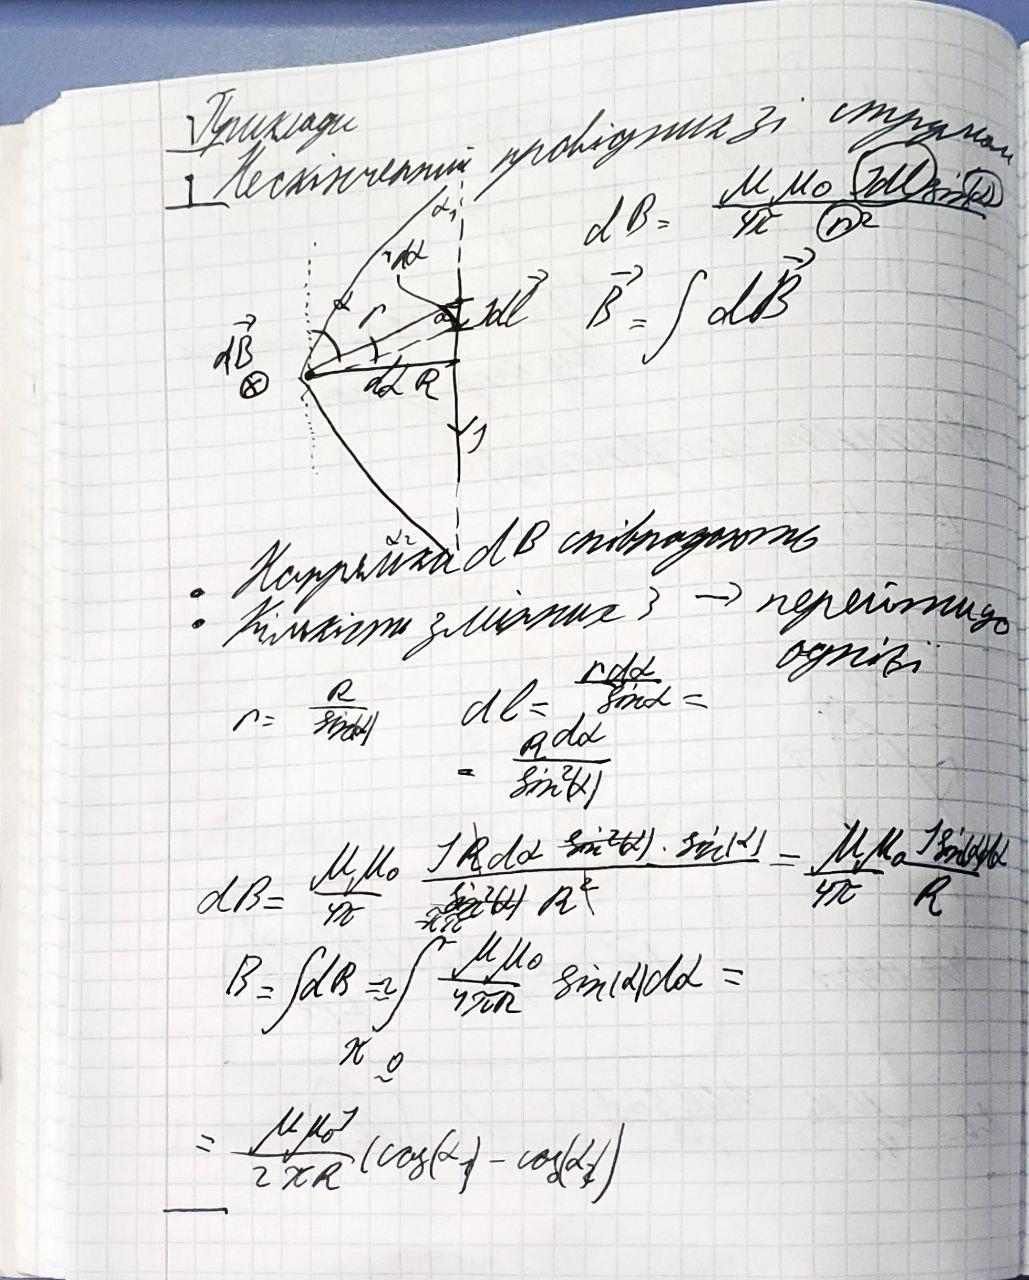 Приклади
1 Нескінченний провідник зі струмом
dB = μμ₀/4π Idl sin(α)/r²
α₁
rdα
α r α Idl⃗ B⃗ = ∫ dB⃗
dB⃗
dα R
I
α₂
• Напрямки dB співпадають
• Кількість змінних 3 → перейти до
однієї
r = R/sin(α) dl = rdα/sinα =
= R dα/sin²(α)
dB = μμ₀/4π I R dα sin²(α) · sin(α)/sin²(α) R² = μμ₀/4π I sin(α)dα/R
B = ∫dB = ∫ μμ₀/4πR sin(α)dα =
π 0
= μμ₀I/2πR (cos(α₁) − cos(α₂))